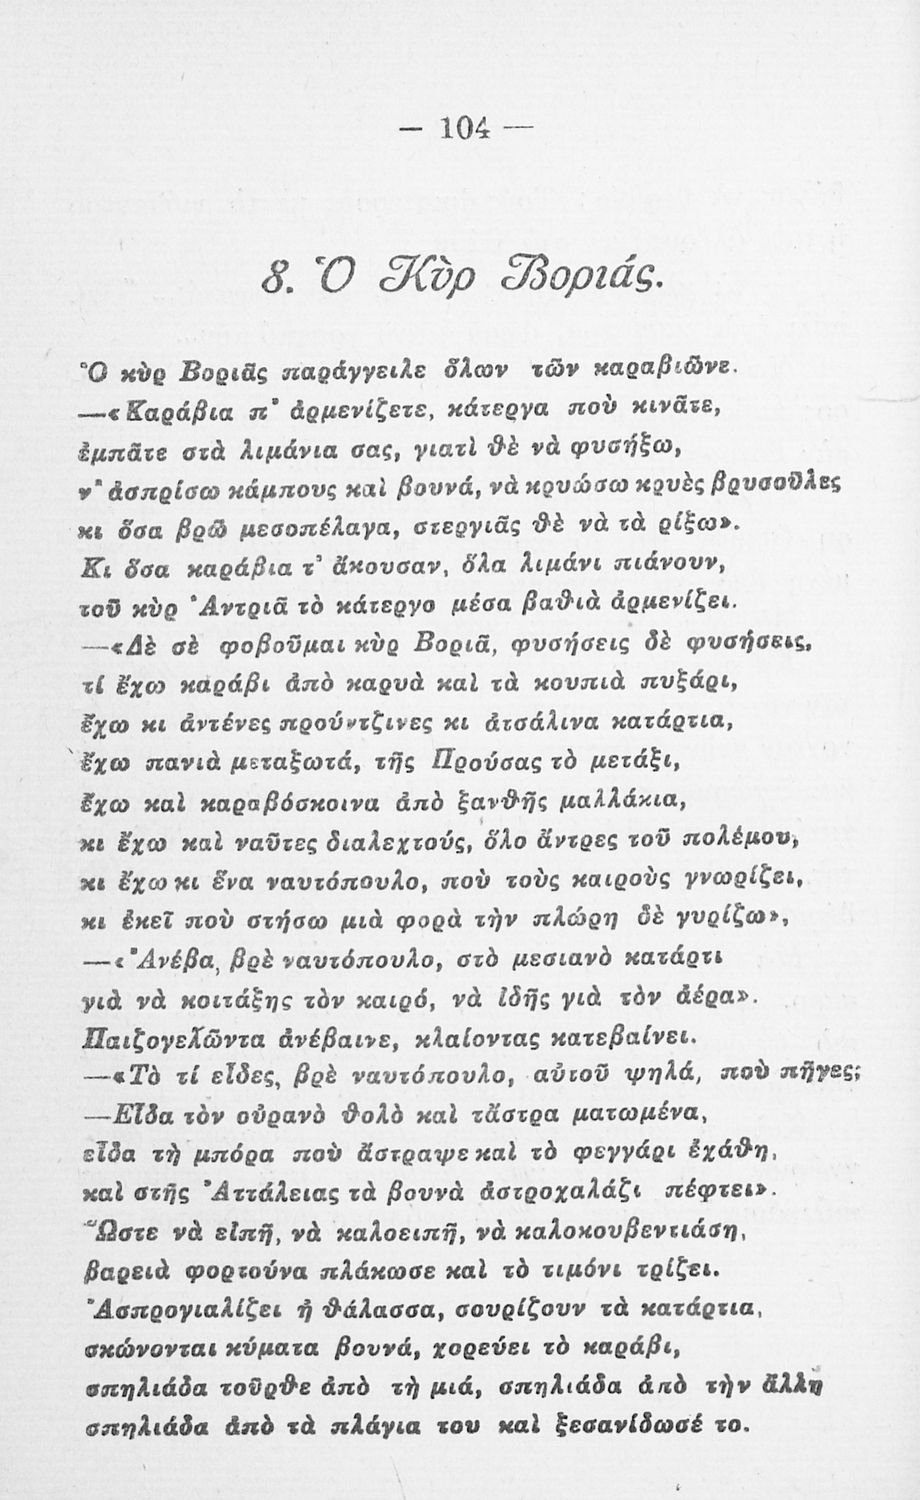 — 104 —
8. Ὁ Κὺρ Βοριάς.
Ὁ κὺρ Βοριᾶς παράγγειλε ὅλων τῶν καραβιῶνε.
—«Καράβια π' ἀρμενίζετε, κάτεργα ποὺ κινᾶτε,
ἐμπᾶτε στὰ λιμάνια σας, γιατὶ θὲ νὰ φυσήξω,
ν' ἀσπρίσω κάμπους καὶ βουνά, νὰ κρυώσω κρυὲς βρυσοῦλες
κι ὅσα βρῶ μεσοπέλαγα, στεργιᾶς θὲ νὰ τὰ ρίξω».
Κι ὅσα καράβια τ' ἄκουσαν, ὅλα λιμάνι πιάνουν,
τοῦ κὺρ Ἀντριᾶ τὸ κάτεργο μέσα βαθιὰ ἀρμενίζει.
—«Δὲ σὲ φοβοῦμαι κὺρ Βοριᾶ, φυσήσεις δὲ φυσήσεις,
τί ἔχω καράβι ἀπὸ καρυὰ καὶ τὰ κουπιὰ πυξάρι,
ἔχω κι ἀντένες προύντζινες κι ἀτσάλινα κατάρτια,
ἔχω πανιὰ μεταξωτά, τῆς Προύσας τὸ μετάξι,
ἔχω καὶ καραβόσκοινα ἀπὸ ξανθῆς μαλλάκια,
κι ἔχω καὶ ναῦτες διαλεχτούς, ὅλο ἄντρες τοῦ πολέμου,
κι ἔχω κι ἕνα ναυτόπουλο, ποὺ τοὺς καιροὺς γνωρίζει,
κι ἐκεῖ ποὺ στήσω μιὰ φορὰ τὴν πλώρη δὲ γυρίζω»,
—«Ἀνέβα, βρὲ ναυτόπουλο, στὸ μεσιανὸ κατάρτι
γιὰ νὰ κοιτάξης τὸν καιρό, νὰ ἰδῆς γιὰ τὸν ἀέρα».
Παιζογελῶντα ἀνέβαινε, κλαίοντας κατεβαίνει.
—«Τὸ τί εἶδες, βρὲ ναυτόπουλο, αὐτοῦ ψηλά, ποὺ πῆγες;
—Εἶδα τὸν οὐρανὸ θολὸ καὶ τἄστρα ματωμένα,
εἶδα τὴ μπόρα ποὺ ἄστραψε καὶ τὸ φεγγάρι ἐχάθη,
καὶ στῆς Ἀττάλειας τὰ βουνὰ ἀστροχαλάζι πέφτει».
Ὥστε νὰ εἰπῆ, νὰ καλοειπῆ, νὰ καλοκουβεντιάση,
βαρειὰ φορτούνα πλάκωσε καὶ τὸ τιμόνι τρίζει.
Ἀσπρογιαλίζει ἡ θάλασσα, σουρίζουν τὰ κατάρτια,
σκώνονται κύματα βουνά, χορεύει τὸ καράβι,
σπηλιάδα τοῦρθε ἀπὸ τὴ μιά, σπηλιάδα ἀπὸ τὴν ἄλλη
σπηλιάδα ἀπὸ τὰ πλάγια του καὶ ξεσανίδωσέ το.